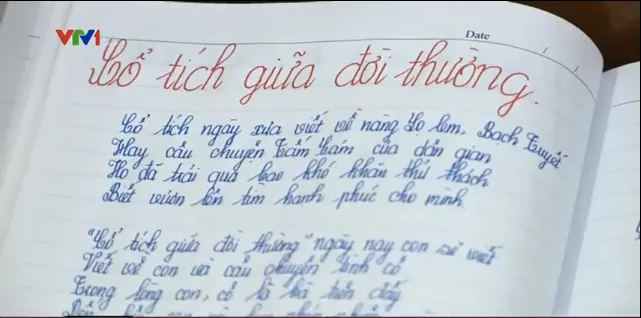 VTV1
Date
Cổ tích giữa đời thường.
Cổ tích ngày xưa viết về nàng Lọ lem, Bạch Tuyết
Hay câu chuyện Tấm Cám của dân gian
Họ đã trải quá bao khó khăn thử thách
Biết vươn lên tìm hạnh phúc cho mình
"Cổ tích giữa đời thường" ngày nay con sẽ viết
Viết về con và câu chuyện tình cô
Trong lòng con, cô là bà tiên đấy